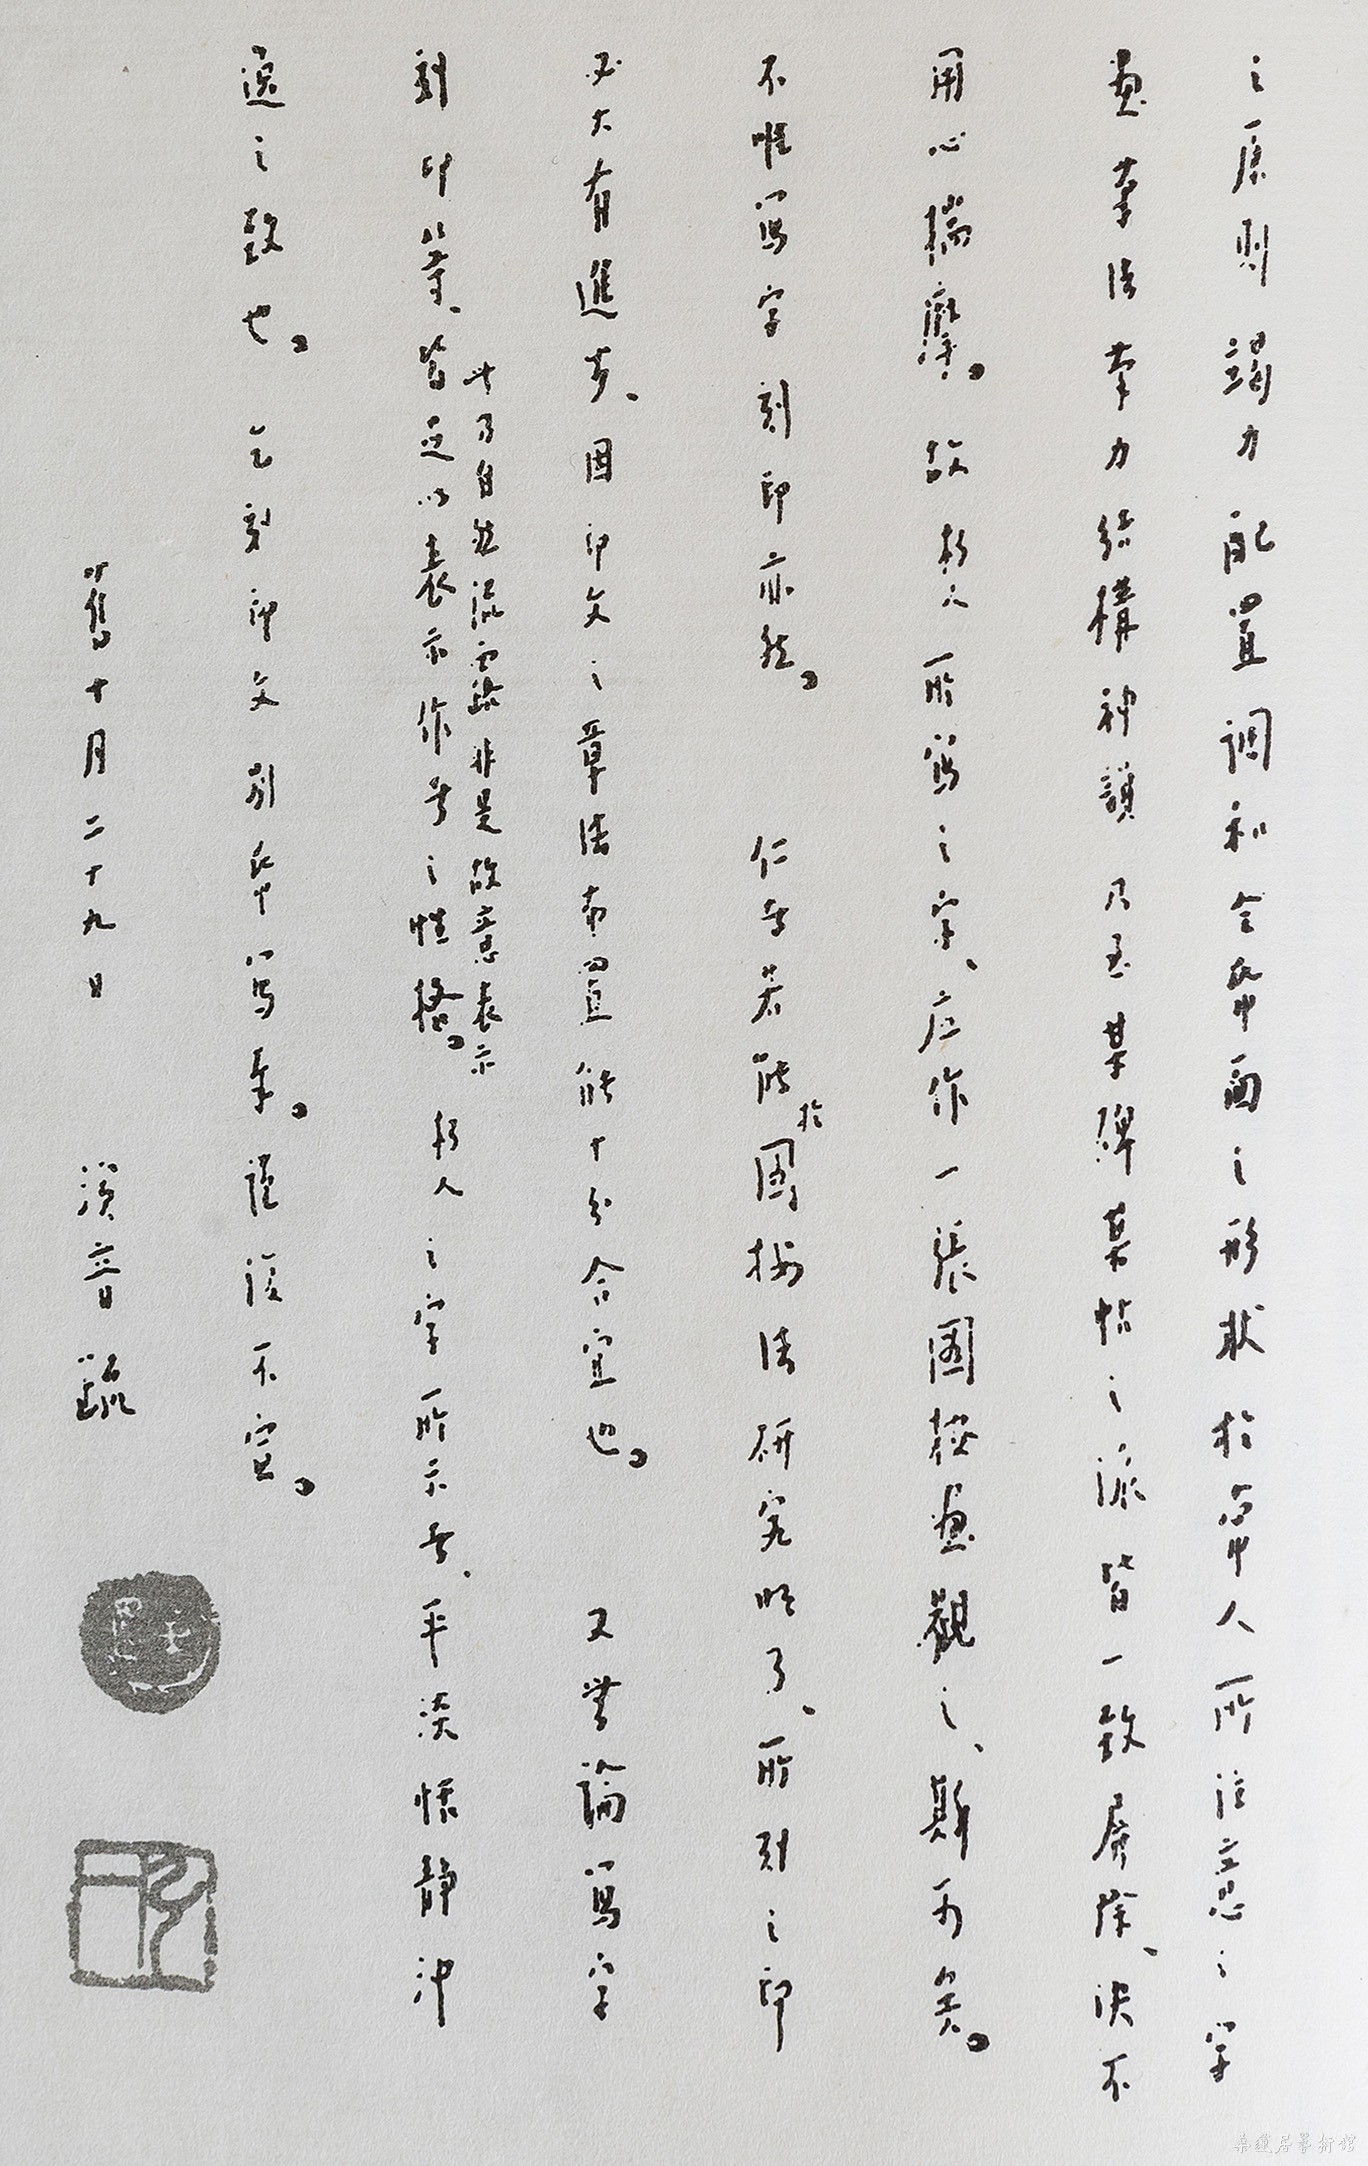 之原則竭力配置調和全紙面之形狀於常人所注意之字
畫筆法筆力結構神韻乃至某碑某帖之派皆一致屏除、決不
用心揣摩。故朽人所寫之字、应作一張圖按畫觀之、斯可矣。
不唯寫字刻印亦然。仁者若能於圖按法研究明了、所刻之印
必大有進步、因印文之章法布置能十分合宜也。又無論寫字
刻印等、皆足以表示作者之性格。朽人之字所示者、平淡恬靜沖
此乃自然流露非是故意表示
逸之致也。乞刻印文別紙寫奉。謹復不宣。
舊十月二十九日 演音疏